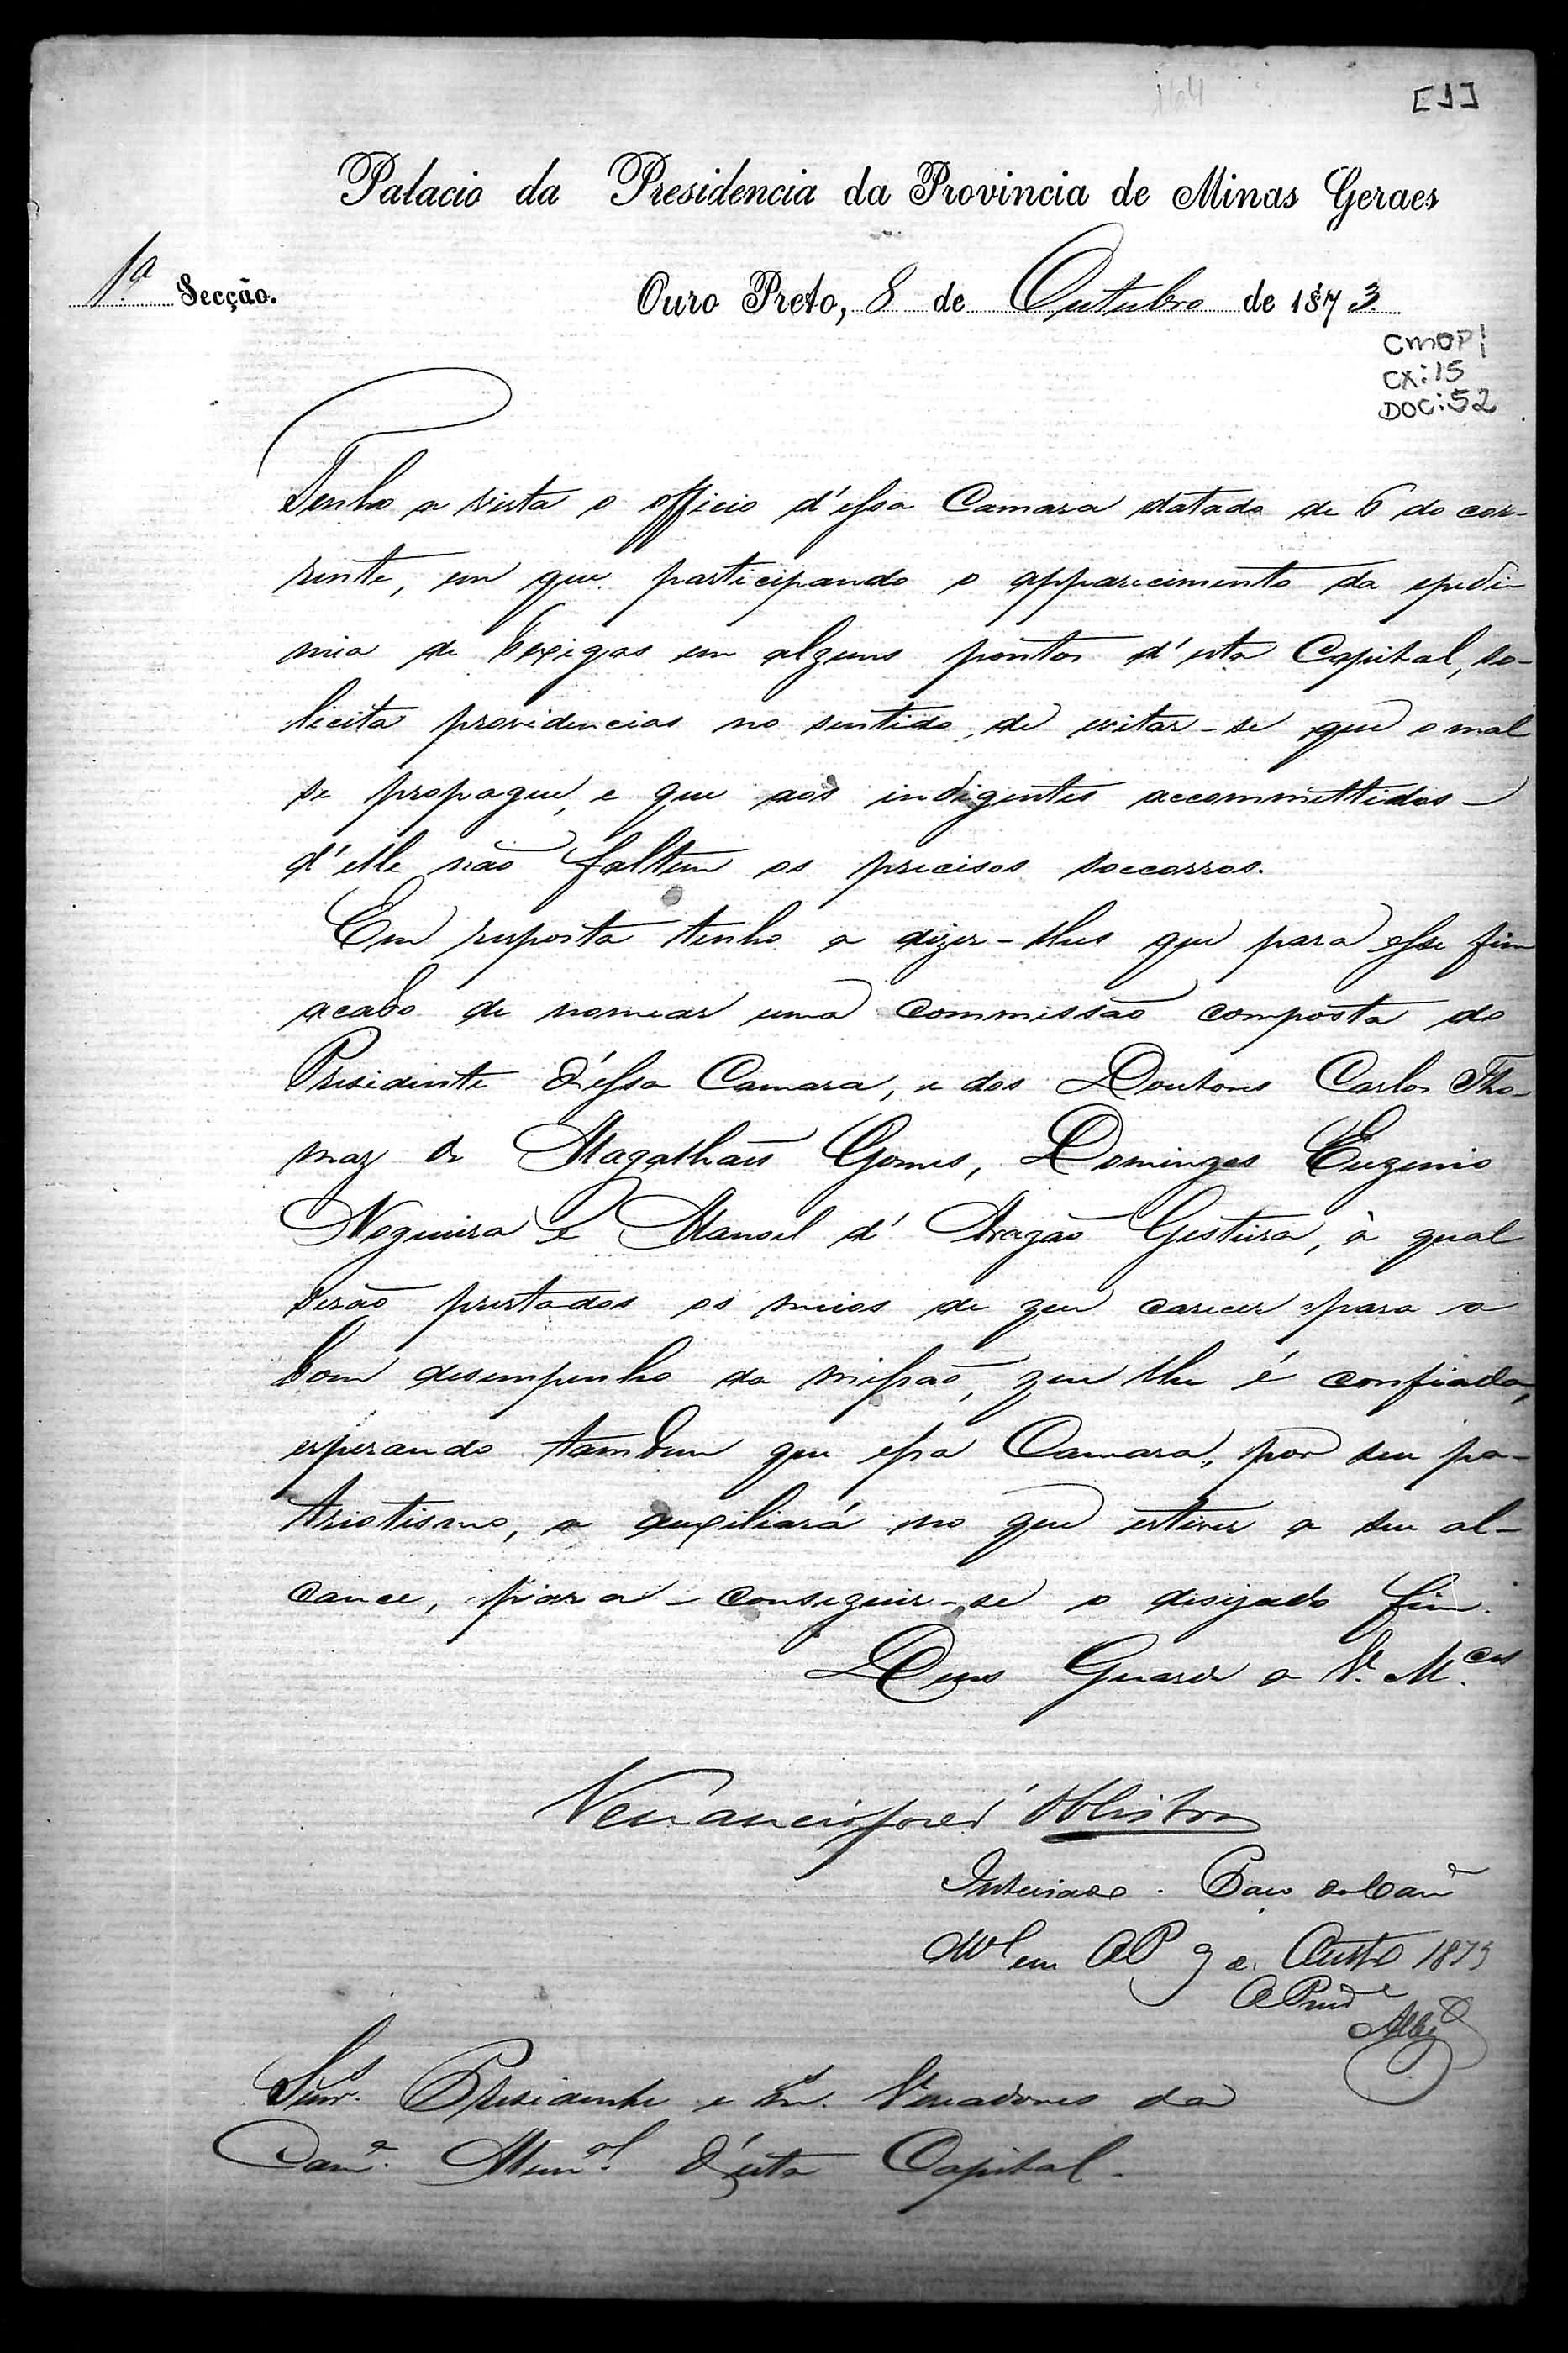 [1]
Palacio da Presidencia da Provincia de Minas Geraes
1ª Secção.
Ouro Preto, 8 de Outubro de 1873
CMOP
CX:15
DOC:52
Tenho a vista o officio d'essa Camara datado de 6 do cor-
rente, em que participando o apparecimento da epide-
mia de bexigas em alguns pontos d'esta Capital, so-
licita providencias no sentido de evitar-se que o mal
se propague, e que aos indigentes accommettidos
d'elle não faltem os precisos soccorros.
Em resposta tenho a dizer-lhes que para esse fim
acabo de nomear uma commissão composta do
Presidente d'essa Camara, e dos Doutores Carlos Tho-
maz de Magalhães Gomes, Domingos Eugenio
Nogueira e Manoel d'Aragão Gesteira, à qual
serão prestados os meios de que carecer para o
bom desempenho da missão, que lhe é confiada,
esperando tambem que essa Camara, por seu pa-
triotismo, a auxiliará no que estiver a seu al-
cance, para conseguir-se o desejado fim.
Deus Guarde a V. M.ces
Venancio José d'Olivª Lisboa
Inteirada. Paço da Camª
Mˡ em OP 9 de Outbº 1873
O Presdᵉ
Snrs. Presidente e Srs. Vereadores da
Camª. Munᵃˡ d'esta Capital.